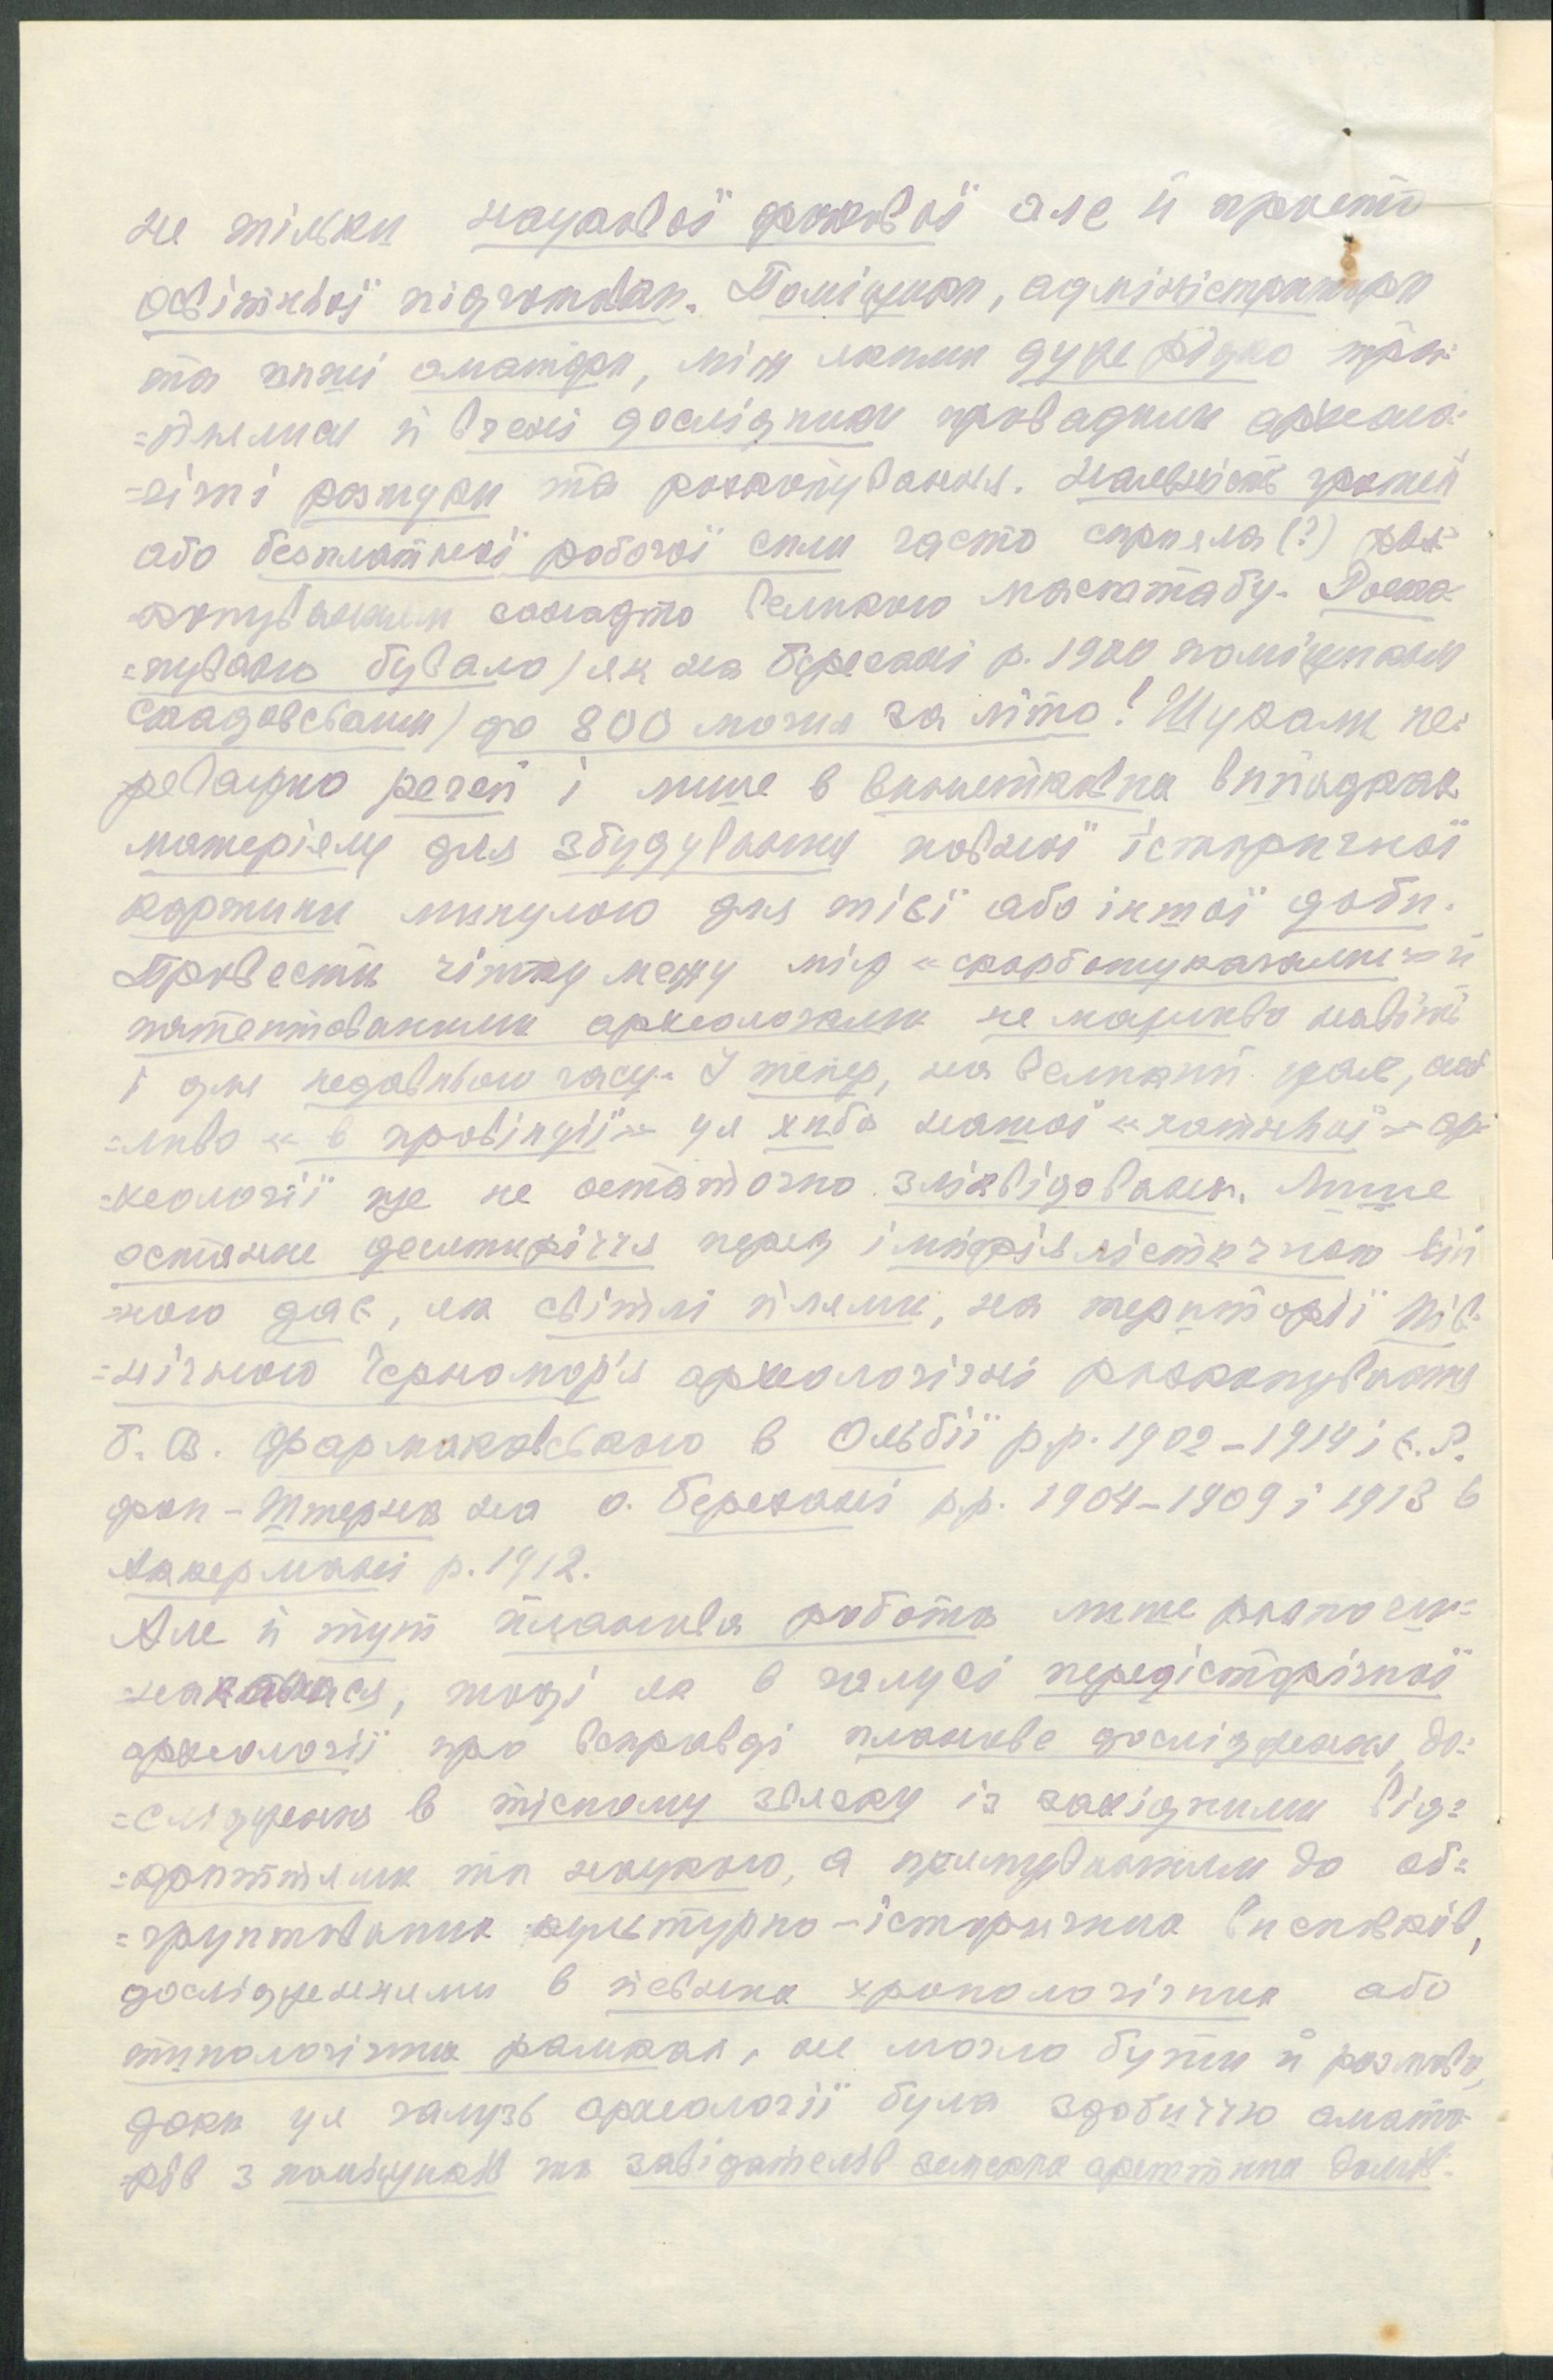 не тільки наукової фахової але й просто
освітньої підготовки. Поміщики, адміністратори
та инші аматори, між якими дуже рідко тра-
=плялися й вчені дослідники провадили архео-
=гічні розшуки та розкопування. Наявність грошей
або безплатної робочої сили часто сприяла (?) роз-
копуванням занадто великого масштабу. Розко-
=пувано бувало (як на Березані р. 1900 поміщиком
Скадовським) до 800 могил за літо! Шукали пе-
реважно речей і лише в виняткових випадках
матеріялу для збудування повної історичної
картини минулого для тієї або іншої доби.
Провести чітку межу між «скарбошукачами» й
патентованими археологами не можливо навіть
і для недавнього часу. І тепер, на великий жаль, мож-
=ливо «в провінції» ця хиба нашої «хатньої» ар-
=хеології ще не остаточно зліквідована. Лише
останнє десятиріччя перед імперіялістичною вій
=ною дає, як світлі плями, на території Пів-
=нічного Чорномор'я археологічні розкопування
Б. В. Фармаковського в Ольбії р.р. 1902–1914 і Е. Р.
фон-Штерна на о. Березані р.р. 1904–1909 і 1913 в
Акермані р. 1912.
Але й тут планова робота лише розпочи-
=налася, тоді як в галузі передісторичної
археології про всправді планове дослідження, до-
=слідження в тісному звязку із західними від-
=криттями та наукою, з прямуванням до об-
=ґрунтованих культурно-історичних висновків,
дослідженнями в певних хронологічних або
типологічних рамках, не могло бути й розмови,
доки ця галузь археології була здобиччю амато-
рів з поміщиків та завідателів земських арештних домів.